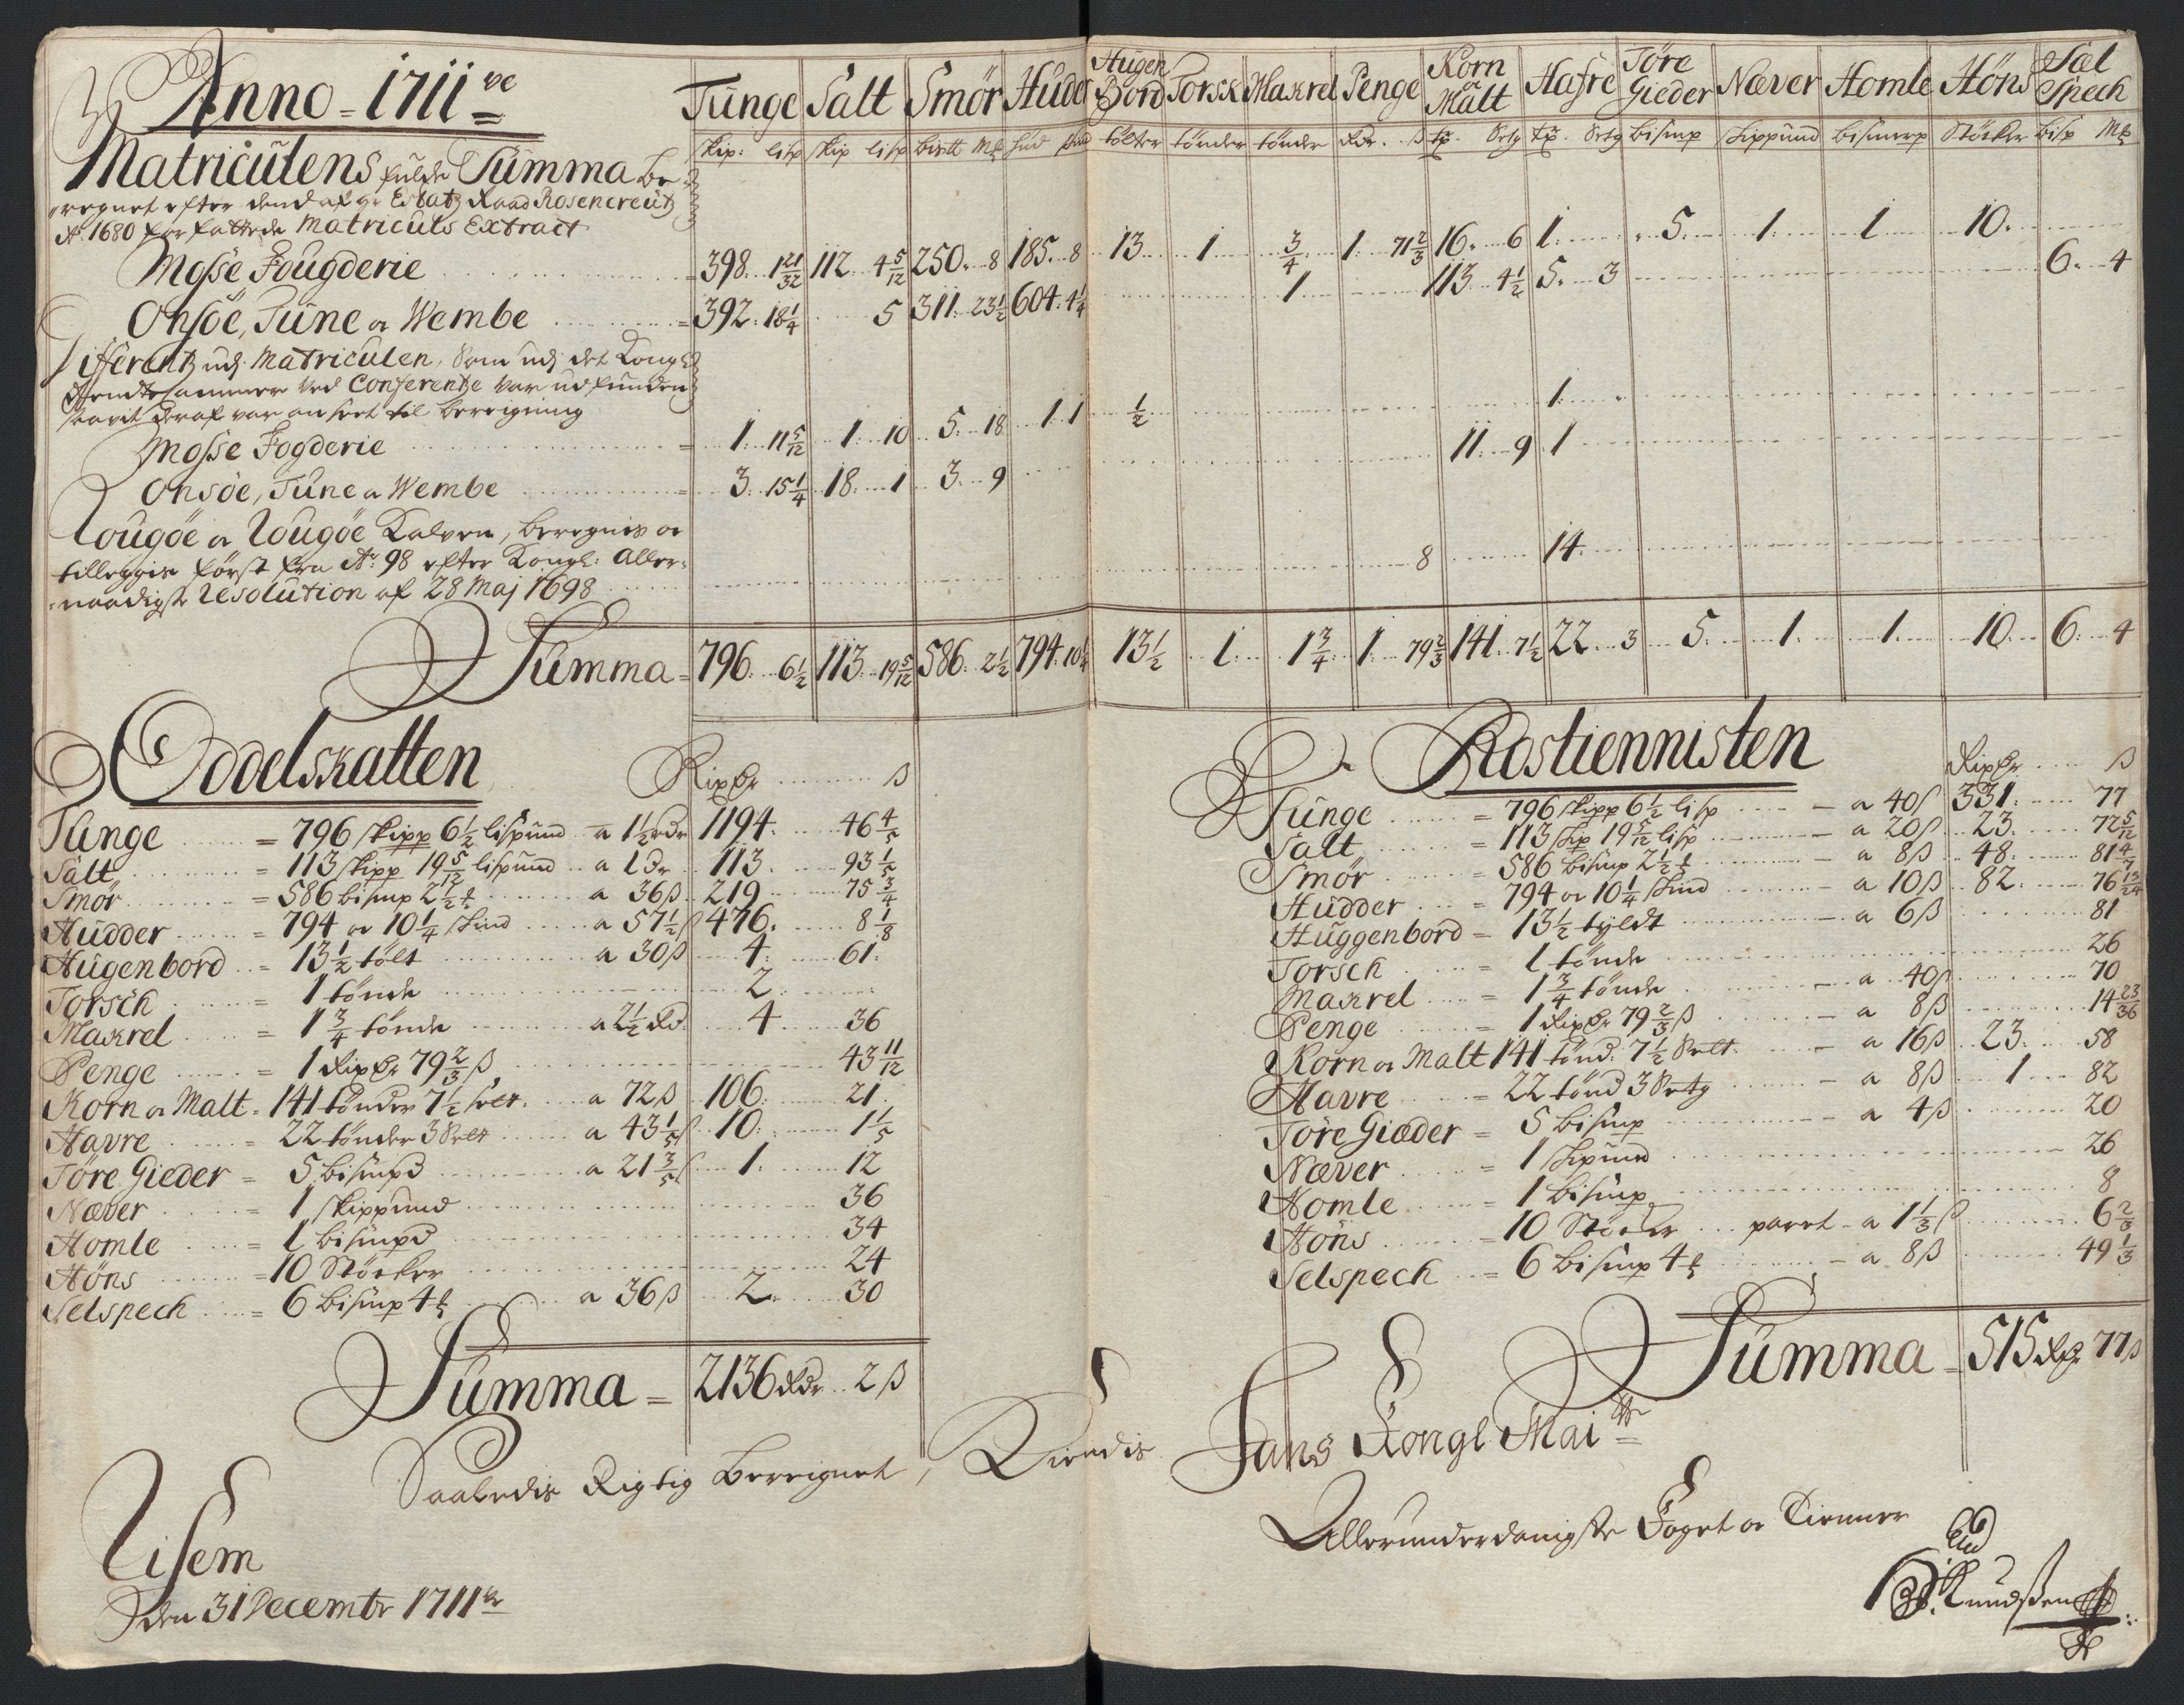 Anno - 1711 ve
Tunge Salt Smör Huder Hugen Bord Torsk Makrel Penge Korn oc Malt Hafre Töre Gieder Næver Homle Höns Sæl Spech
skip: lisp skip lisp bisth Mk hud skind tölter tönder tönder Rdr. ß tr. Setg tr. Setg bismp skippund bismerp Støcker bisp Mk
Matriculens fulde Summa be-
regnet efter dend af Hr Estatz Raad Rosencreutz
Ao 1680 forfattede Matriculs Extract
Mosse Fougderie = 398. 1 21/32 112 4 5/12 250. 8 185. 8 13 1 3/4 1. 71 2/3 16. 6 1. 5. 1. 1 10.
Onsöe, Tune oc Wembe = 392. 18 1/4 5 311. 23 1/2 604. 4 1/4 1 113. 4 1/2 5. 3 6. 4
Diferentz udj Matriculen, Som udj det Kongl:
Rendte Cammer ved Conferentze var udfunden
saavit deraf var anseet til beregning
Mosse Fogderie = 1. 11 5/12 1. 10 5. 18 1. 1 1/2 1.
Onsöe, Tune oc Wembe = 3. 15 1/4 18. 1 3. 9 11. 9 1
Rougöe oc Rougöe Kalven, beregnis oc
tilleggis först fra Ao: 98 efter Kongl: Aller-
naadigste Resolution af 28 Maj 1698 8 14.
Summa = 796. 6 1/2 113. 19 5/12 586. 2 1/2 794. 10 1/4 13 1/2 1. 1 3/4 1. 79 2/3 141. 7 1/2 22. 3 5. 1. 1. 10. 6. 4
Oddelskatten Rixdr ß
Tunge = 796 skipp 6 1/2 lispund a 1 1/2 rdr 1194. 46 4/5
Salt = 113 skipp 19 5/12 lispund a 1 Dr 113. 93 1/5
Smör = 586 bismp 2 1/2 a 36 ß 219 75 3/4
Hudder = 794 oc 10 1/4 skind a 57 1/2 ß 476. 8 1/8
Hugenbord = 13 1/2 tölt a 30 ß 4. 61.
Torsch = 1 tönde 2.
Makrel = 1 3/4 tönde a 2 1/2 Rd. 4 36
Penge = 1 Rixdr 79 2/3 ß 43 11/12
Korn oc Malt = 141 tönder 7 1/2 set. a 72 ß 106. 21.
Havre = 22 tönder 3 Set a 43 1/5 ß 10. 1 1/5
Töre Gieder = 5 bismpd a 21 3/5 ß 1. 12
Næver = 1 skippund 36
Homle = 1 bismpd 34
Höns = 10 Støcker 24
Selspech = 6 bismp 4 a 36 ß 2. 30
Summa = 2136 Rdr 2 ß
Rostiennisten Rixdr ß
Tunge = 796 skipp 6 1/2 lisp a 40 ß 331. 77
Salt = 113 skip 19 5/12 lisp a 20 ß 23. 72 5/12
Smör = 586 bismp 2 1/2 a 8 ß 48. 81 4/7
Hudder = 794 oc 10 1/4 skind a 10 ß 82. 76 13/24
Huggenbord = 13 1/2 tyldt a 6 ß 81
Torsch = 1 tönde 26
Makrel = 1 3/4 tönde a 40 ß 70
Penge = 1 Rixdr 79 2/3 ß a 8 ß 14 23/36
Korn oc Malt 141 tönd. 7 1/2 Set. a 16 ß 23. 58
Havre = 22 tönd 3 Setg a 8 ß 1 82
Töre Giæder = 5 bismp a 4 ß 20
Næver = 1 skipund 26
Homle = 1 bismp 8
Höns = 10 Støcker parret a 1 1/3 ß 6 2/3
Selspech = 6 bismp 4 a 8 ß 49 1/3
Summa = 515 Rdr 77 ß
Saaledis Rigtig Bereignet, Tiendis
Hans Kongl Mai tt
Allerunderdanigste Foget oc Tienner
Risem
den 31 Decembr 1711
Knudssen